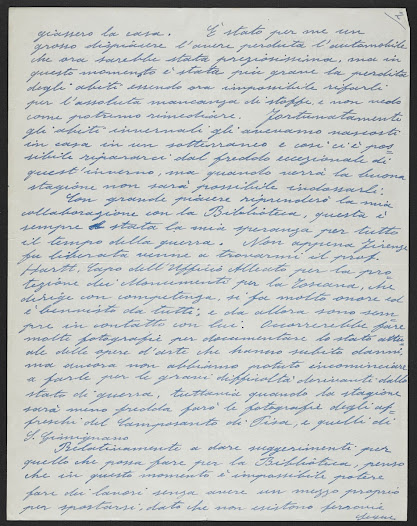 2/
giassero la casa. È stato per me un
grosso dispiacere l'avere perduta l'automobile
che ora sarebbe stata preziosissima, ma in
questo momento è stata più grave la perdita
degli abiti essendo ora impossibile rifarli
per l'assoluta mancanza di stoffe, e non vedo
come potremo rimediare. Fortunatamente
gli abiti invernali gli avevamo nascosti
in casa in un sotterraneo e così ci è pos=
sibile ripararci dal freddo eccezionale di
quest'inverno, ma quando verrà la buona
stagione non sarà possibile indossarli.
Con grande piacere riprenderò la mia
collaborazione con la Biblioteca, questa è
sempre stata la mia speranza per tutto
il tempo della guerra. Non appena Firenze
fu liberata venne a trovarmi il prof.
Hartt, Capo dell'Ufficio Alleato per la pro=
tezione dei Monumenti per la Toscana, che
dirige con competenza, si fa molto onore ed
è benvisto da tutti, e da allora sono sem=
pre in contatto con lui. Occorrerebbe fare
molte fotografie per documentare lo stato attu=
ale delle opere d'arte che hanno subito danni,
ma ancora non abbiamo potuto incominciare
a farle per le gravi difficoltà derivanti dallo
stato di guerra, tuttavia quando la stagione
sarà meno fredda farò le fotografie degli af=
freschi del Camposanto di Pisa, e quelli di
S. Gimignano
Relativamente a dare suggerimenti per
quello che possa fare per la Biblioteca, penso
che in questo momento è impossibile potere
fare dei lavori senza avere un mezzo proprio
per spostarsi, dato che non esistono ferrovie